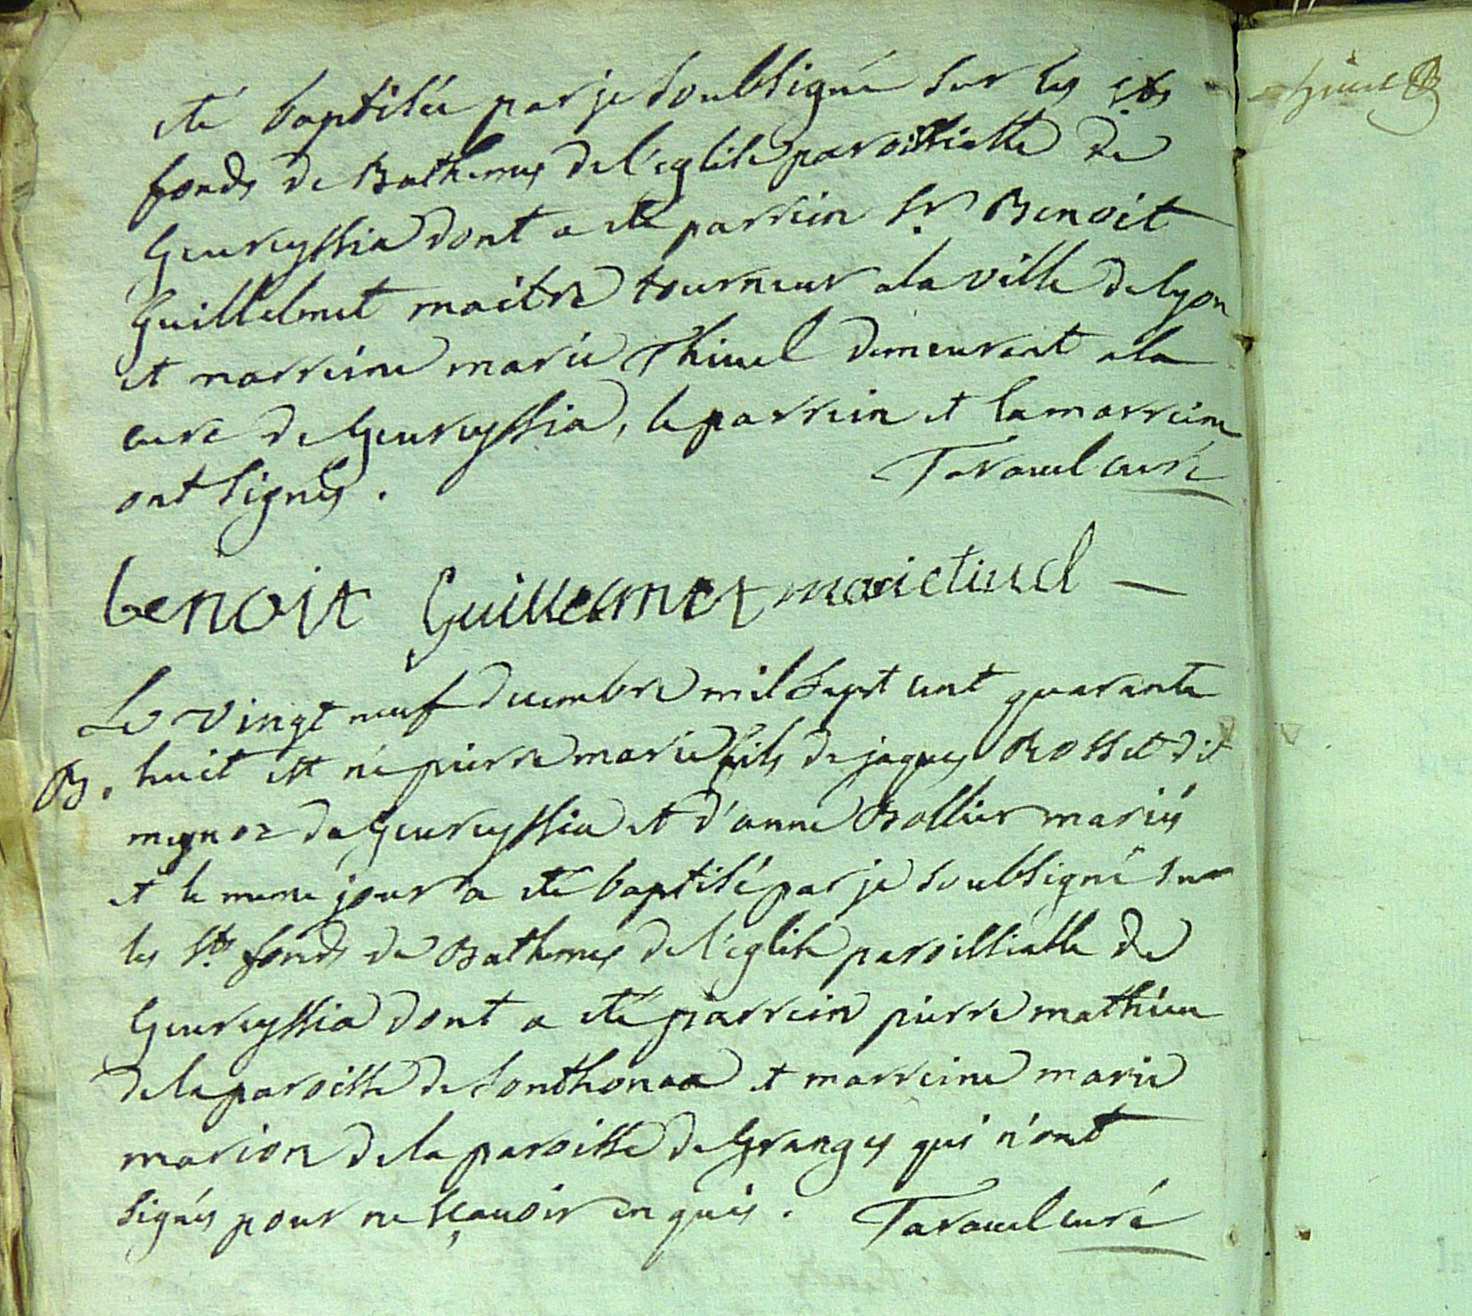 eté baptisée par je soubsigné sur les sts
fonds de Bathemes de l'eglise paroissialle de
Geureyssia dont a eté parrein Sr. Benoit
Guillelmet maitre tourneur a la ville de lyon
et marreine marie Thiuel demeurant a la
cure de Geureyssia, le parrein et la marreine
ont signés.
Tarauel curé
benoit Guillelmet marie tiuel
Le vingt neuf decembre mil sept cent quarante
B. huit est né pierre marie fils de jaques Rosset dit
mignoz de Geureyssia et d'anne Bollier mariés
et le meme jour a eté baptisé par je soubsigné sur
les sts fonds de Bathemes de l'eglise paroissialle de
Geureyssia dont a eté parrein pierre mathieu
de la paroisse de Sonthonax et marreine marie
marion de la paroisse de Granges qui n'ont
signés pour ne sçavoir enquis. Tarauel curé